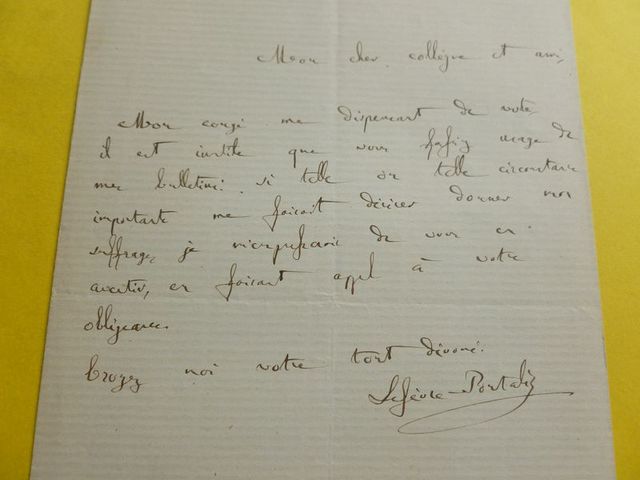 Mon cher collègue et ami,
Mon congé me dispensant de voter
il est inutile que vous fassiez usage de
mes bulletins. si telle ou telle circonstance
importante me faisait désirer donner mon
suffrage, je m'empresserais de vous en
avertir, en faisant appel à votre
obligeance.
Croyez moi votre tout dévoué.
Lefèvre-Pontalis